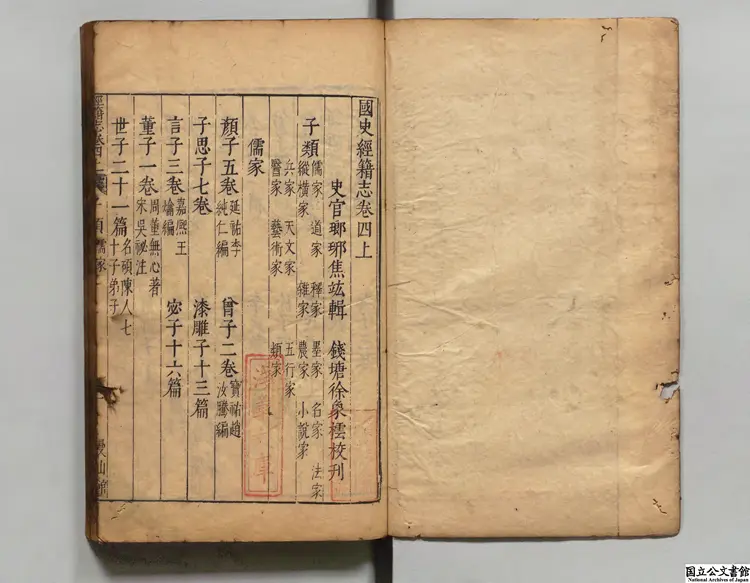 國史經籍志卷四上
史官瑯琊焦竑輯 錢塘徐象橒校刊
子類 儒家 道家 釋家 墨家 名家 法家
縱橫家 雜家 農家 小說家
兵家 天文家 五行家
醫家 藝術家 類家
儒家
顏子五卷 延祐李純仁編 曾子二卷 寶祐趙汝騰編
子思子七卷 漆雕子十三篇
言子三卷 嘉熙王爚編 宓子十六篇
董子一卷 周董無心著 宋吳祕注
世子二十一篇 名碩陳人七十子弟子
經籍志卷四上 子類 儒家
曼山館
国立公文書館
National Archives of Japan